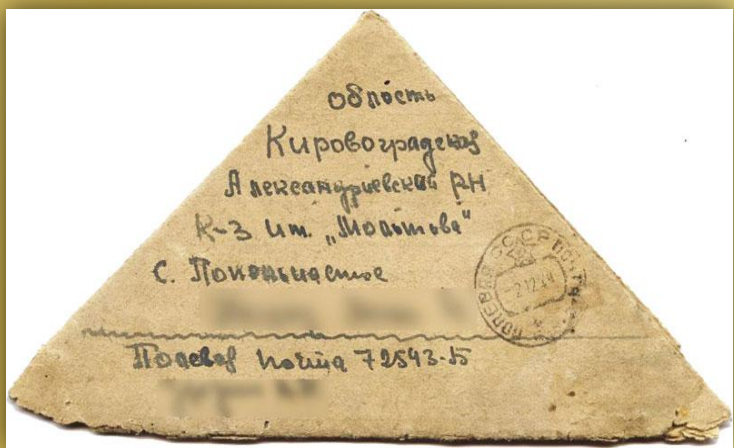 область
Кировоградская
Александриевский РН
К-з им. „Молотова"
с.
Полевая почта 72543-Б
ПОЛЕВАЯ ПОЧТА СССР
2 12 44